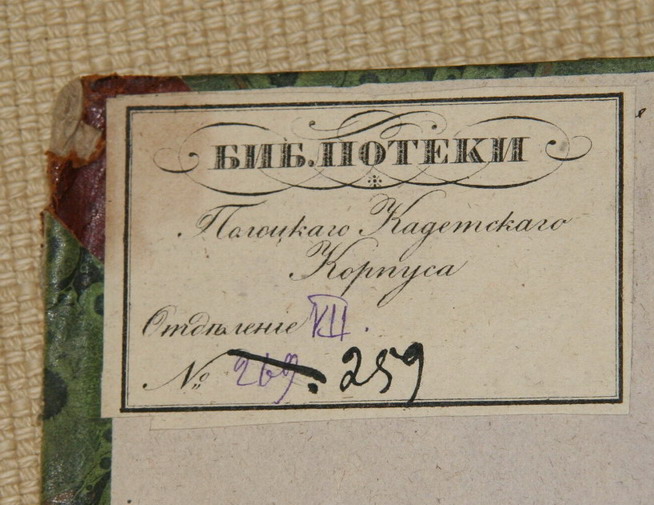 БИБЛІОТЕКИ
Полоцкаго Кадетскаго
Корпуса
Отдѣленіе VII.
№ 269. 259